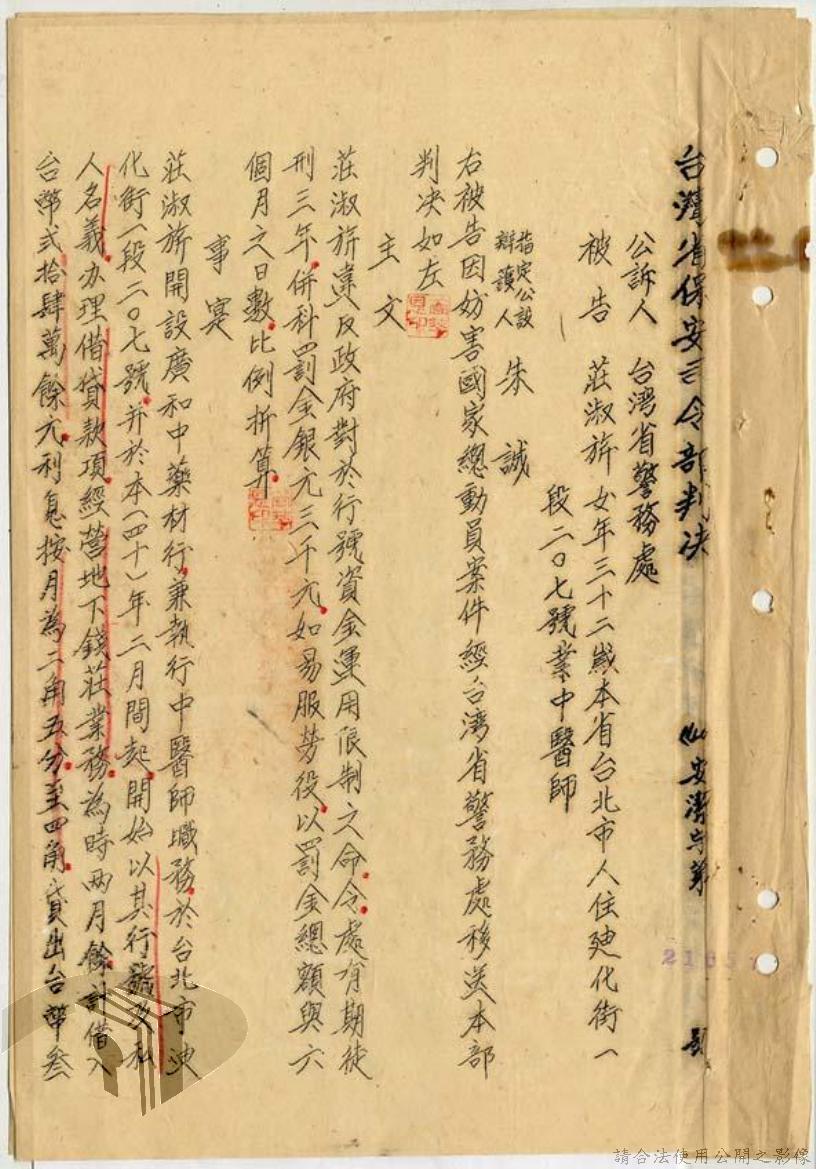 台灣省保安司令部判决
(41)安潔字第
號
公訴人 台湾省警務處
被告 莊淑旂 女年三十二歲本省台北市人住廸化街一
段二〇七號業中醫師
指定公設
辯護人 朱誠
右被告因妨害國家總動員案件經台湾省警務處移送本部
判决如左
主文
莊淑旂違反政府對於行號資金運用限制之命令處有期徒
刑三年併科罰金銀元三千元如易服勞役以罰金總額與六
個月之日數比例折算
事实
莊淑旂開設廣和中藥材行兼執行中醫師職務於台北市廸
化街一段二〇七號并於本(四十一)年二月間起開始以其行號及私
人名義办理借貸款項經营地下錢莊業務為時两月餘計借入
台幣弍拾肆萬餘元利息按月為二角五分至四角貸出台幣叁
請合法使用公開之影像